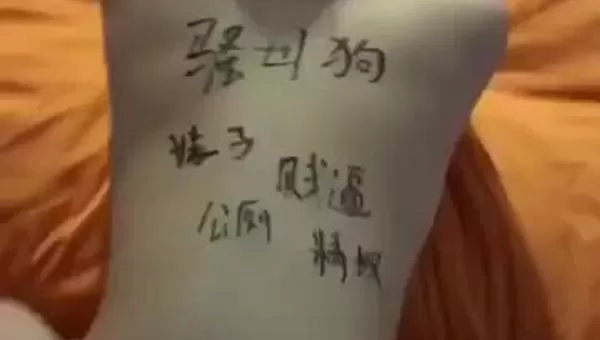 骚母狗
婊子
贱逼
公厕
精奴